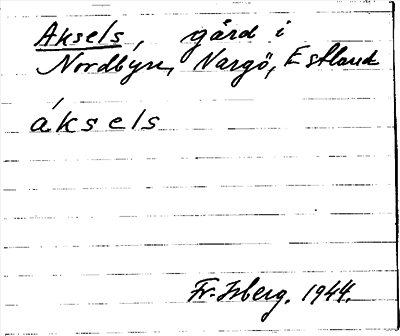 Aksels, gård i
Nordbyn, Nargö, Estland
áksels
Fr. Isberg. 1944.